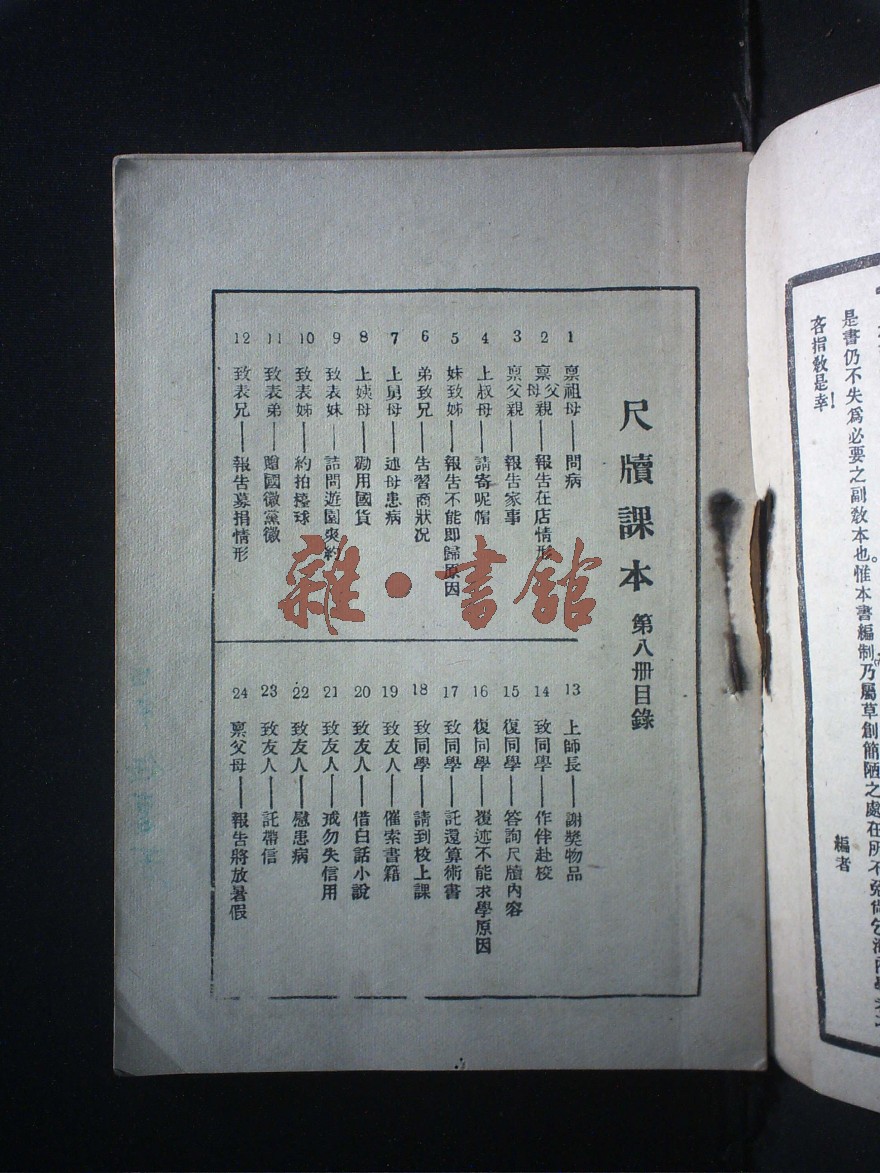 是書仍不失爲必要之副敎本也。惟本書編制乃屬草創簡陋之處在所不免尚乞海內
吝指敎是幸!
編者
尺牘課本 第八冊目錄
1 禀祖母——問病
2 禀父母親——報告在店情形
3 禀父親——報告家事
4 上叔母——請寄呢帽
5 妹致姊——報告不能卽歸原因
6 弟致兄——告習商狀況
7 上舅母——述母患病
8 上姨母——勸用國貨
9 致表妹——詰問遊園爽約
10 致表姊——約拍檯球
11 致表弟——贈國徽黨徽
12 致表兄——報告募捐情形
13 上師長——謝獎物品
14 致同學——作伴赴校
15 復同學——答詢尺牘內容
16 復同學——覆述不能求學原因
17 致同學——託還算術書
18 致同學——請到校上課
19 致友人——催索書籍
20 致友人——借白話小說
21 致友人——戒勿失信用
22 致友人——慰患病
23 致友人——託帶信
24 禀父母——報告將放暑假
雜·書館